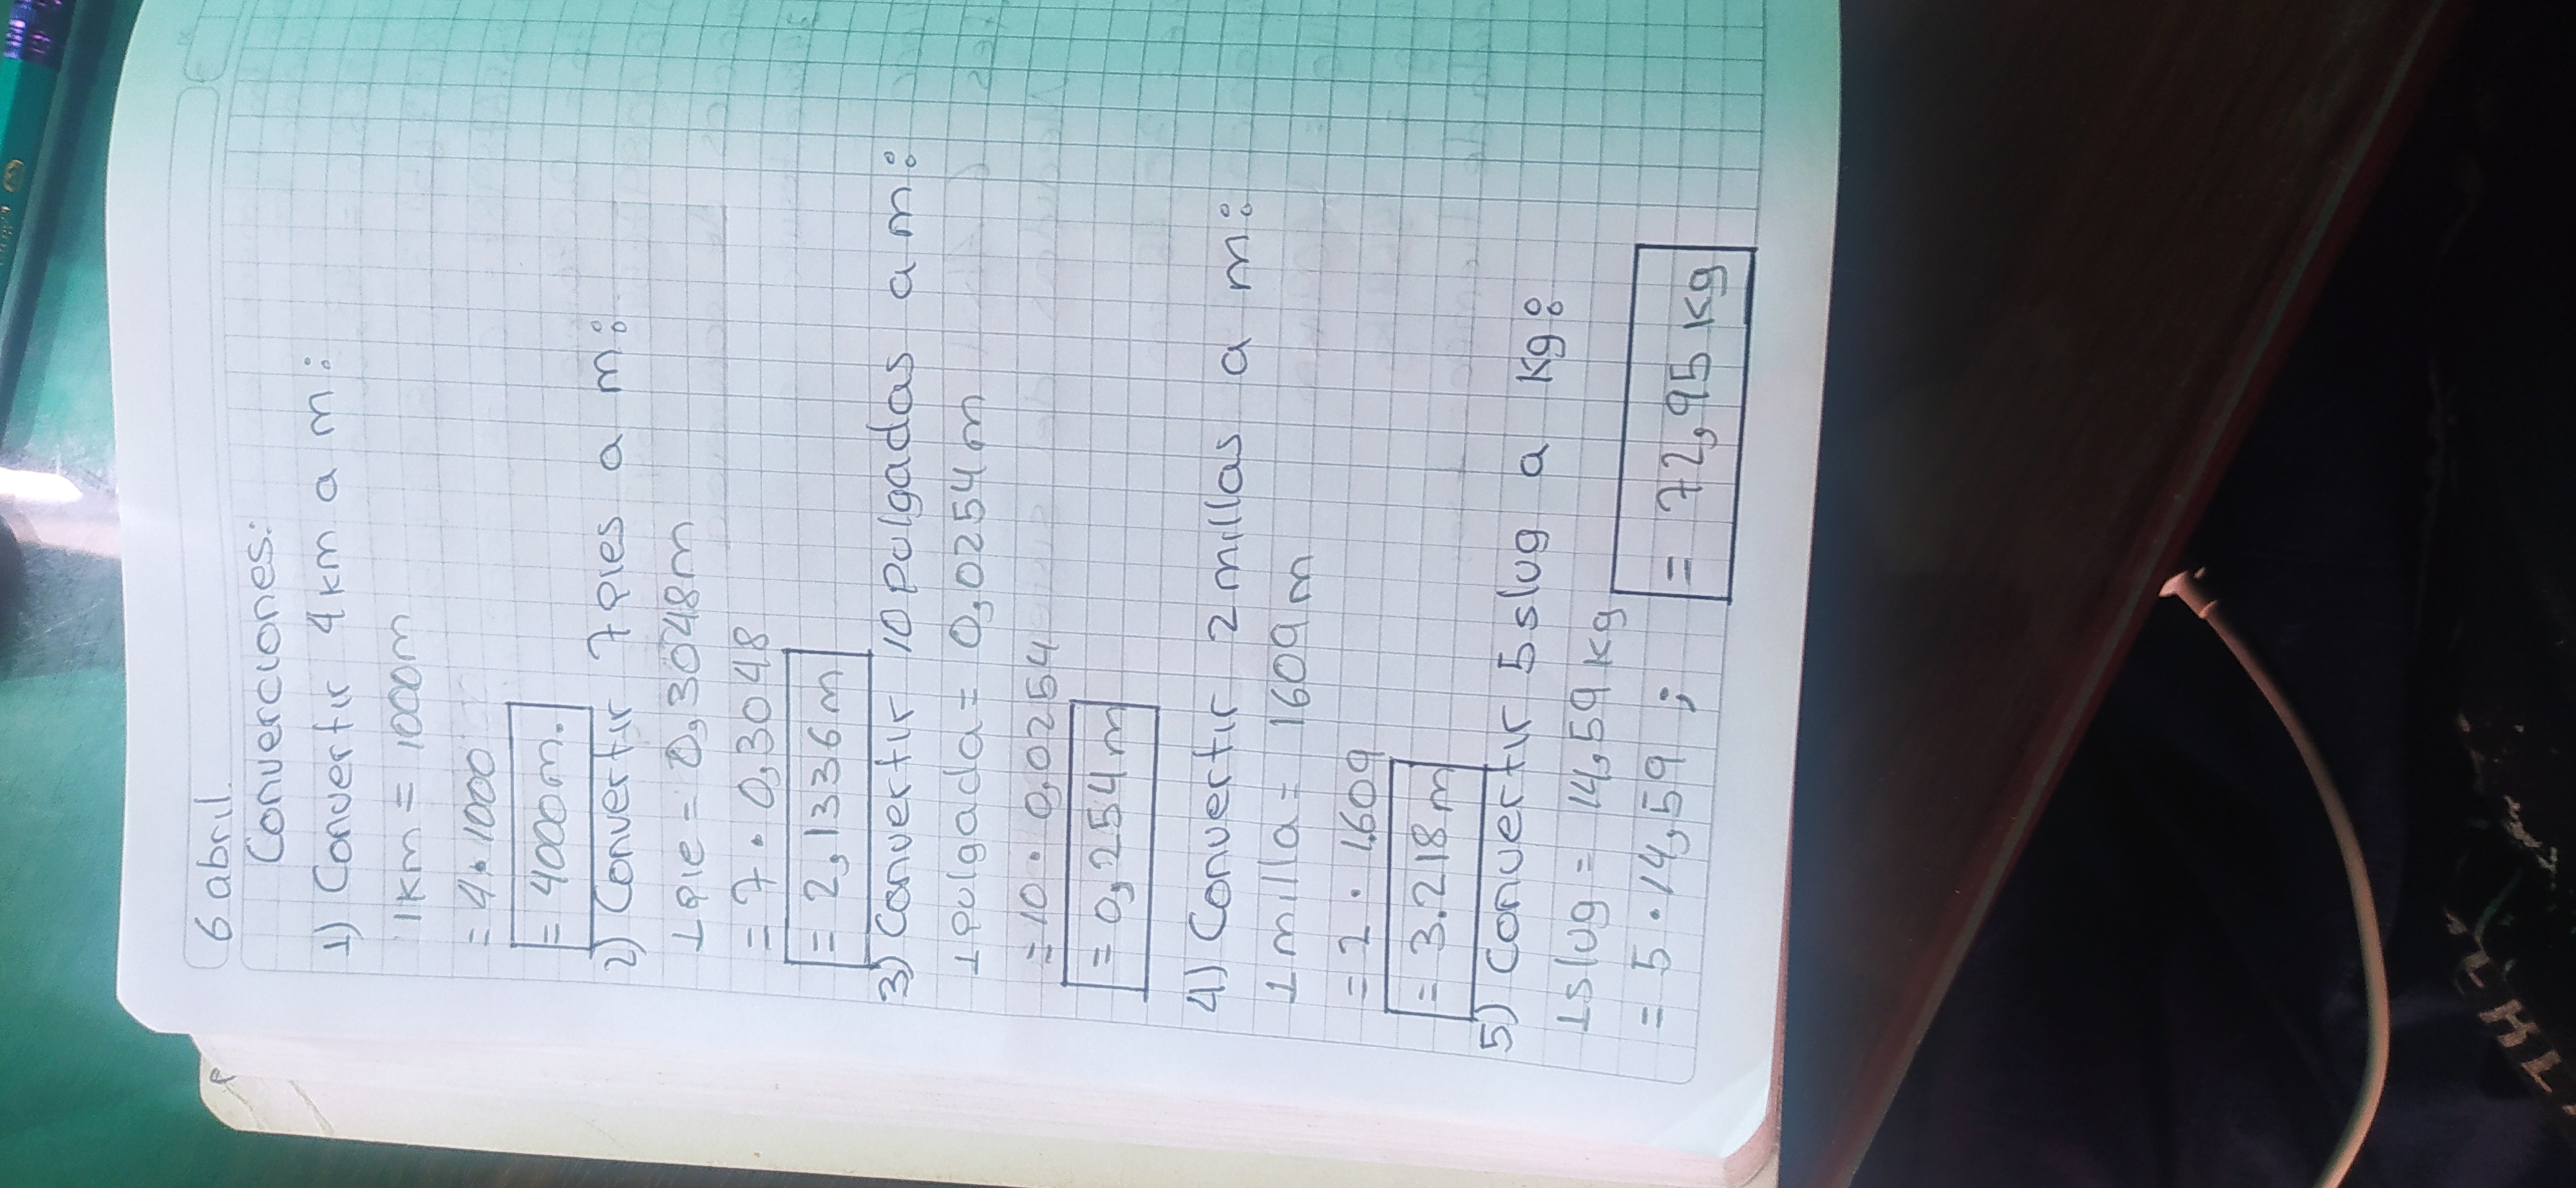 6 abril.
Converciones:
1) Convertir 4km a m:
1km = 1000m
= 4 • 1000
= 4000m.
2) Convertir 7 pies a m:
1 pie = 0,3048m
= 7 • 0,3048
= 2,1336m
3) Convertir 10 pulgadas a m:
1 pulgada = 0,0254m
= 10 • 0,0254
= 0,254m
4) Convertir 2 millas a m:
1 milla = 1609m
= 2 • 1.609
= 3.218m
5) Convertir 5 slug a kg:
1 slug = 14,59 kg
= 5 • 14,59 ; = 72,95 kg